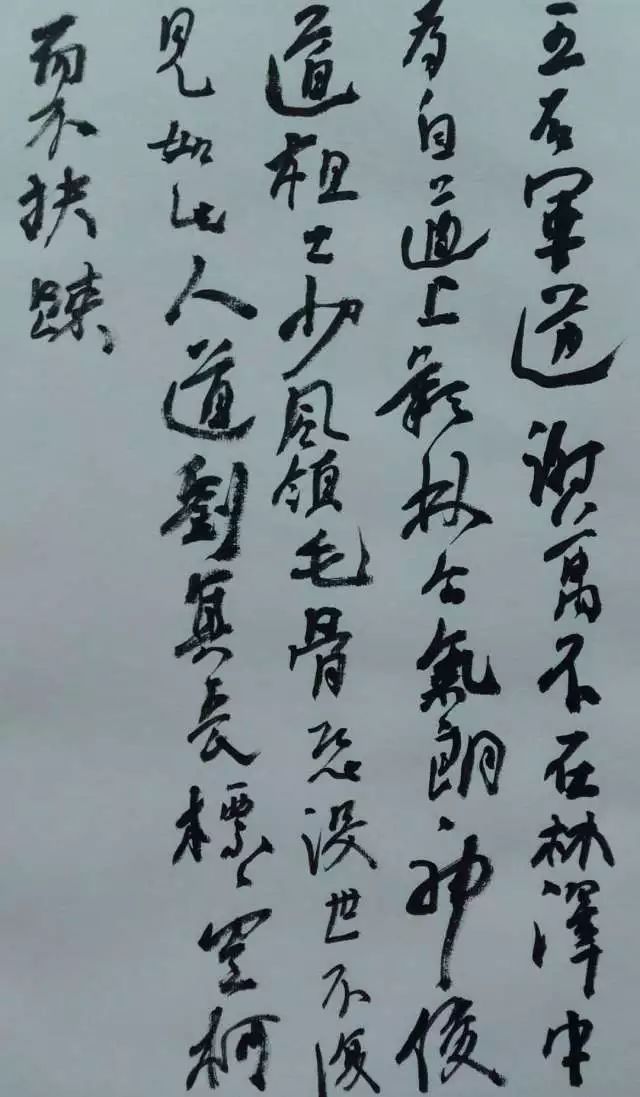 王右軍道謝萬石在林澤中
為自遒上歎林公氣朗神俊
道祖士少風領毛骨恐沒世不復
見如此人道劉真長標雲柯
而不扶踈